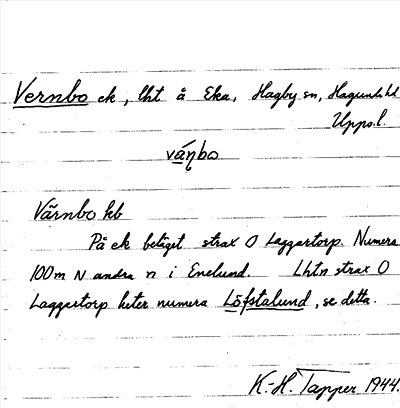 Vernbo ek, lht å Eka, Hagby sn, Hagunda hd
Upps.l.
vä̀ṇbo
Värnbo hb
På ek beläget strax O Laggartorp. Numera
100 m N andra n i Enelund. Lhtn strax O
Laggartorp heter numera Löfstalund, se detta.
K.-H. Tapper 1944.